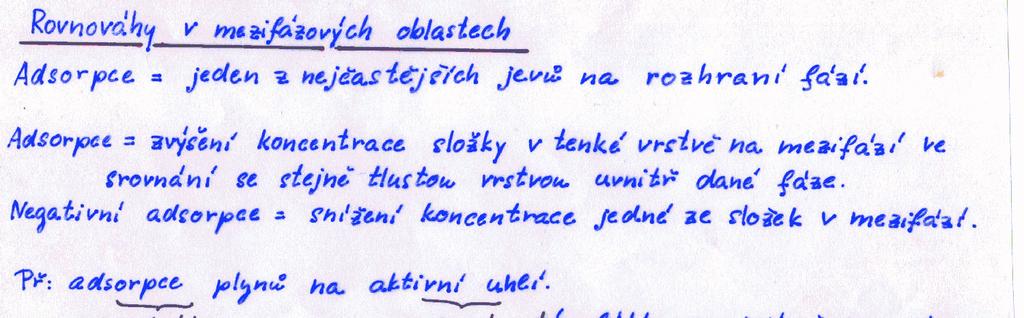 Rovnováhy v mezifázových oblastech
Adsorpce = jeden z nejčastějších jevů na rozhraní fází.
Adsorpce = zvýšení koncentrace složky v tenké vrstvě na mezifází ve
srovnání se stejně tlustou vrstvou uvnitř dané fáze.
Negativní adsorpce = snížení koncentrace jedné ze složek v mezifází.
Př: adsorpce plynů na aktivní uhlí.